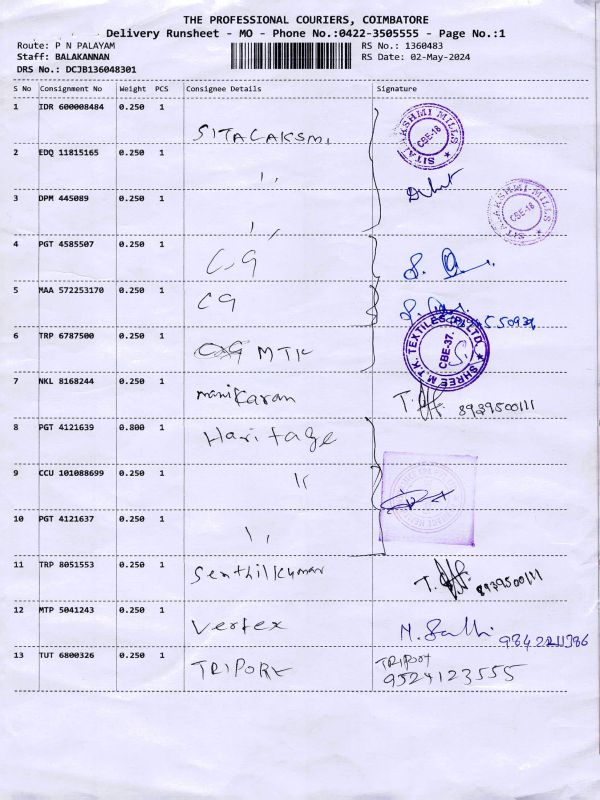 THE PROFESSIONAL COURIERS, COIMBATORE
Delivery Runsheet - MO - Phone No.:0422-3505555 - Page No.:1
Route: P N PALAYAM RS No.: 1360483
Staff: BALAKANNAN RS Date: 02-May-2024
DRS No.: DCJB136048301
S No Consignment No Weight PCS Consignee Details Signature
1 IDR 600008484 0.250 1 SITALAKSMI SITALAKSHMI MILLS CBE-18
2 EDQ 11815165 0.250 1 ,,
3 DPM 445089 0.250 1 ,, SITALAKSHMI MILLS CBE-18
4 PGT 4585507 0.250 1 C.G
5 MAA 572253170 0.250 1 CG
6 TRP 6787500 0.250 1 MTK SHREE M.T.K. TEXTILES (P) LTD. CBE-37.
7 NKL 8168244 0.250 1 manikaran 8939500111
8 PGT 4121639 0.800 1 Haritage
9 CCU 101088699 0.250 1 ,,
10 PGT 4121637 0.250 1 ,,
11 TRP 8051553 0.250 1 Senthilkumar 8939500111
12 MTP 5041243 0.250 1 Vertex
13 TUT 6800326 0.250 1 TRIPORT TRIPORT
9524123555